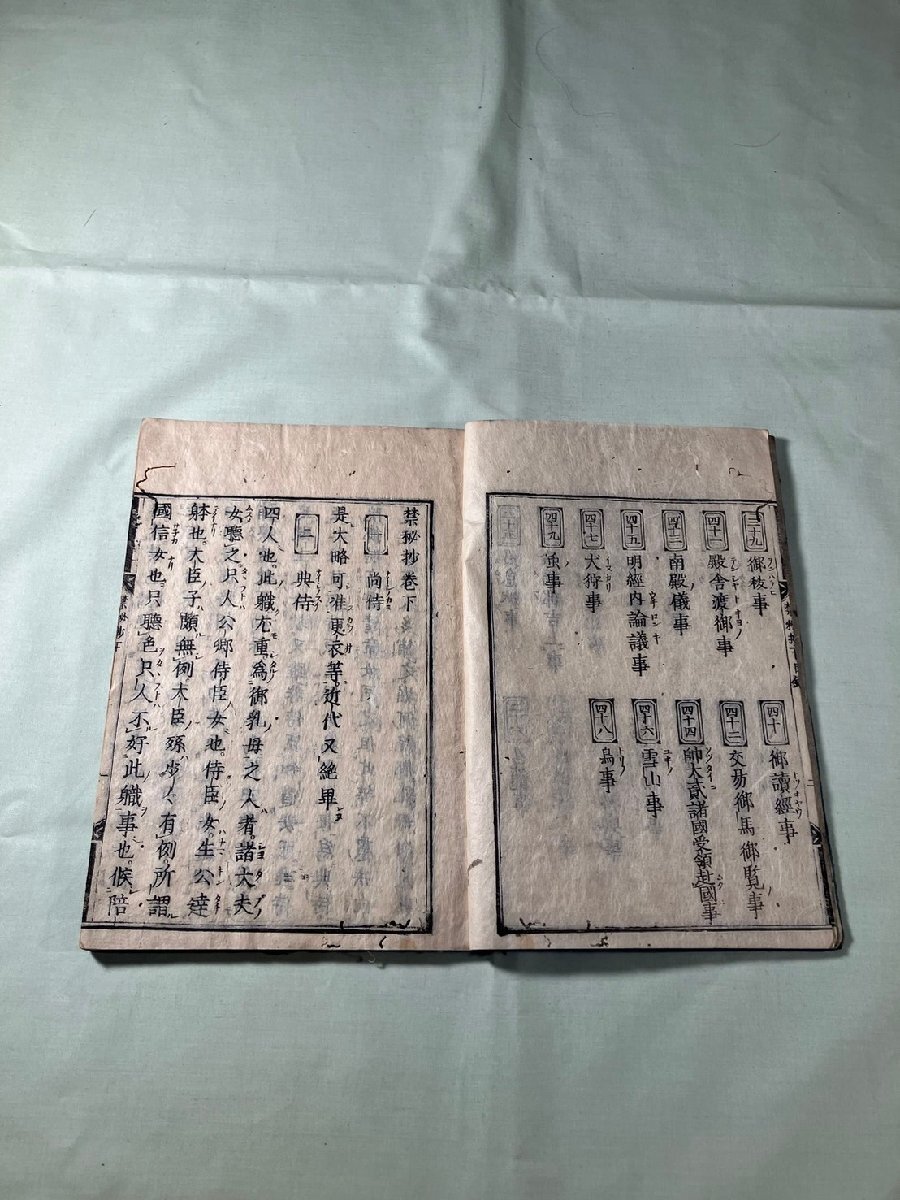 三十九 御祓事
四十 御讀經事
四十一 殿舎渡御事
四十二 交易御馬御覧事
四十三 南殿儀事
四十四 帥大貳諸國受領赴國事
四十五 明經内論議事
四十六 雪山事
四十七 大狩事
四十八 鳥事
四十九 虫事
禁秘抄巻下
一 尚侍
是大略可准更衣等近代又絶畢
二 典侍
四人也此職尤重為御乳母之人者諸大夫
女聴之只人公卿侍臣女也侍臣女生公達
躰也大臣子頗無例大臣孫歩々有例所謂
國信女也只聴色只人不好此職事也候陪